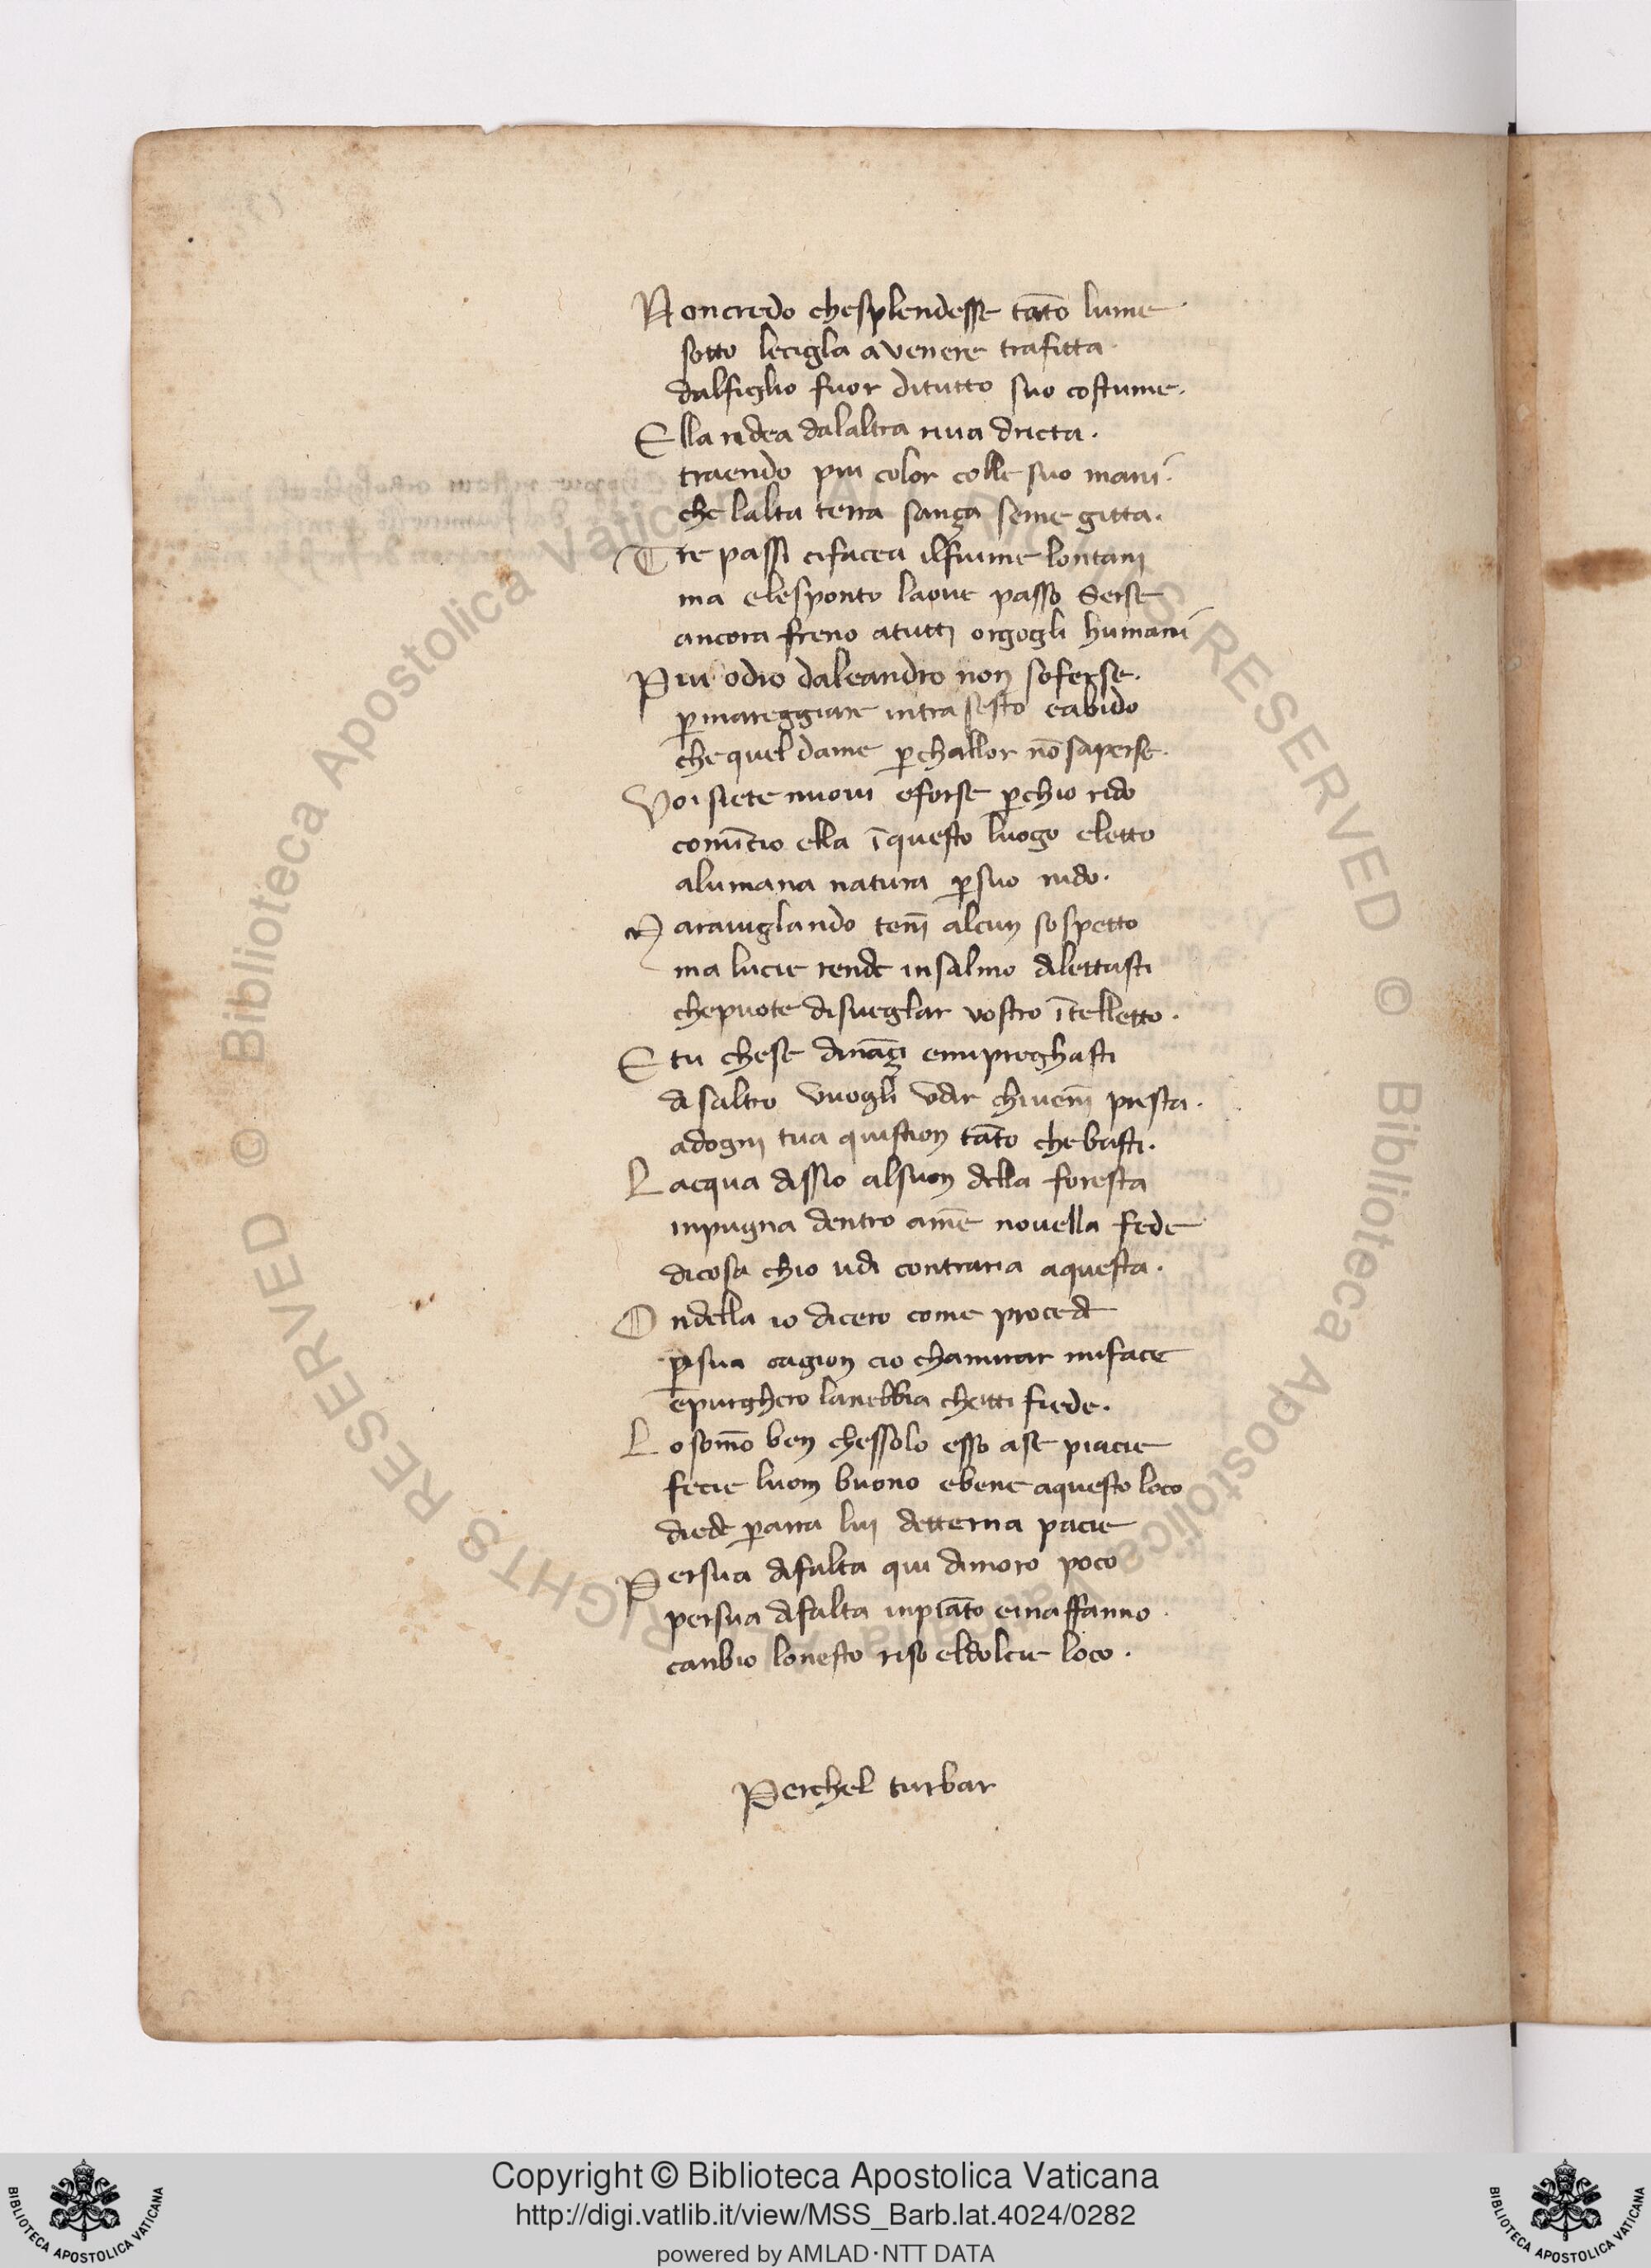 Noncredo chesplendesse tāto lume
sotto lecigla a venere trafitta
dalfiglio fuor ditutto suo costume.
Ella ridea dalaltra riua dricta.
traendo piu color colle suo mani.
che lalta terra sança seme gitta.
Tre passi cifacea ilfiume lontani
ma elesponto laoue passo Serse
ancora freno atutti orgogli humani
Piu odio daleandro non soferse.
ꝑmareggiare intra sesto eabido
che quel dame ꝑchallor nō saperse.
Voi siete nuoui eforse ꝑchio rido
comīcio ella īquesto luogo eletto
alumana natura ꝑsuo nido.
Marauiglando teni alcun sospetto
ma lucie rende insalmo dilettasti
chepuote disueglar vostro ītelletto.
Etu chese dināçi emipreghasti
di saltro vuogli vdir chiueni presta.
adogni tua quistion tāto chebasti.
Lacqua dissio alsuon della foresta
inpugna dentro amē nouella fede
dicosa chio udi contraria aquesta.
Ondella io dicero come procede
ꝑsua cagion cio chamirar miface
epurghero lanebbia chetti fiede.
Losomō ben chessolo esso ase piacie
fecie luom buono ebene aquesto loco
diede ꝑarra lui detterna pacie
Persua difalta qui dimoro poco
persua difalta inpiāto einaffanno
canbio lonesto riso eldolcie loco.
Perchel turbar
© Biblioteca Apostolica Vaticana ALL RIGHTS RESERVED © Biblioteca Apostolica Vaticana ALL RIGHTS RESERVED
Copyright © Biblioteca Apostolica Vaticana
http://digi.vatlib.it/view/MSS_Barb.lat.4024/0282
powered by AMLAD·NTT DATA
BIBLIOTECA APOSTOLICA VATICANA
BIBLIOTECA APOSTOLICA VATICANA